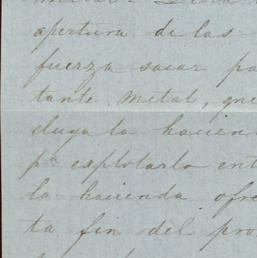 apertura de las
fuerza sacar pa
tante metal, que
cluya la hacien
pª explotarlo ent
la hacienda ofre
ta fin del pro